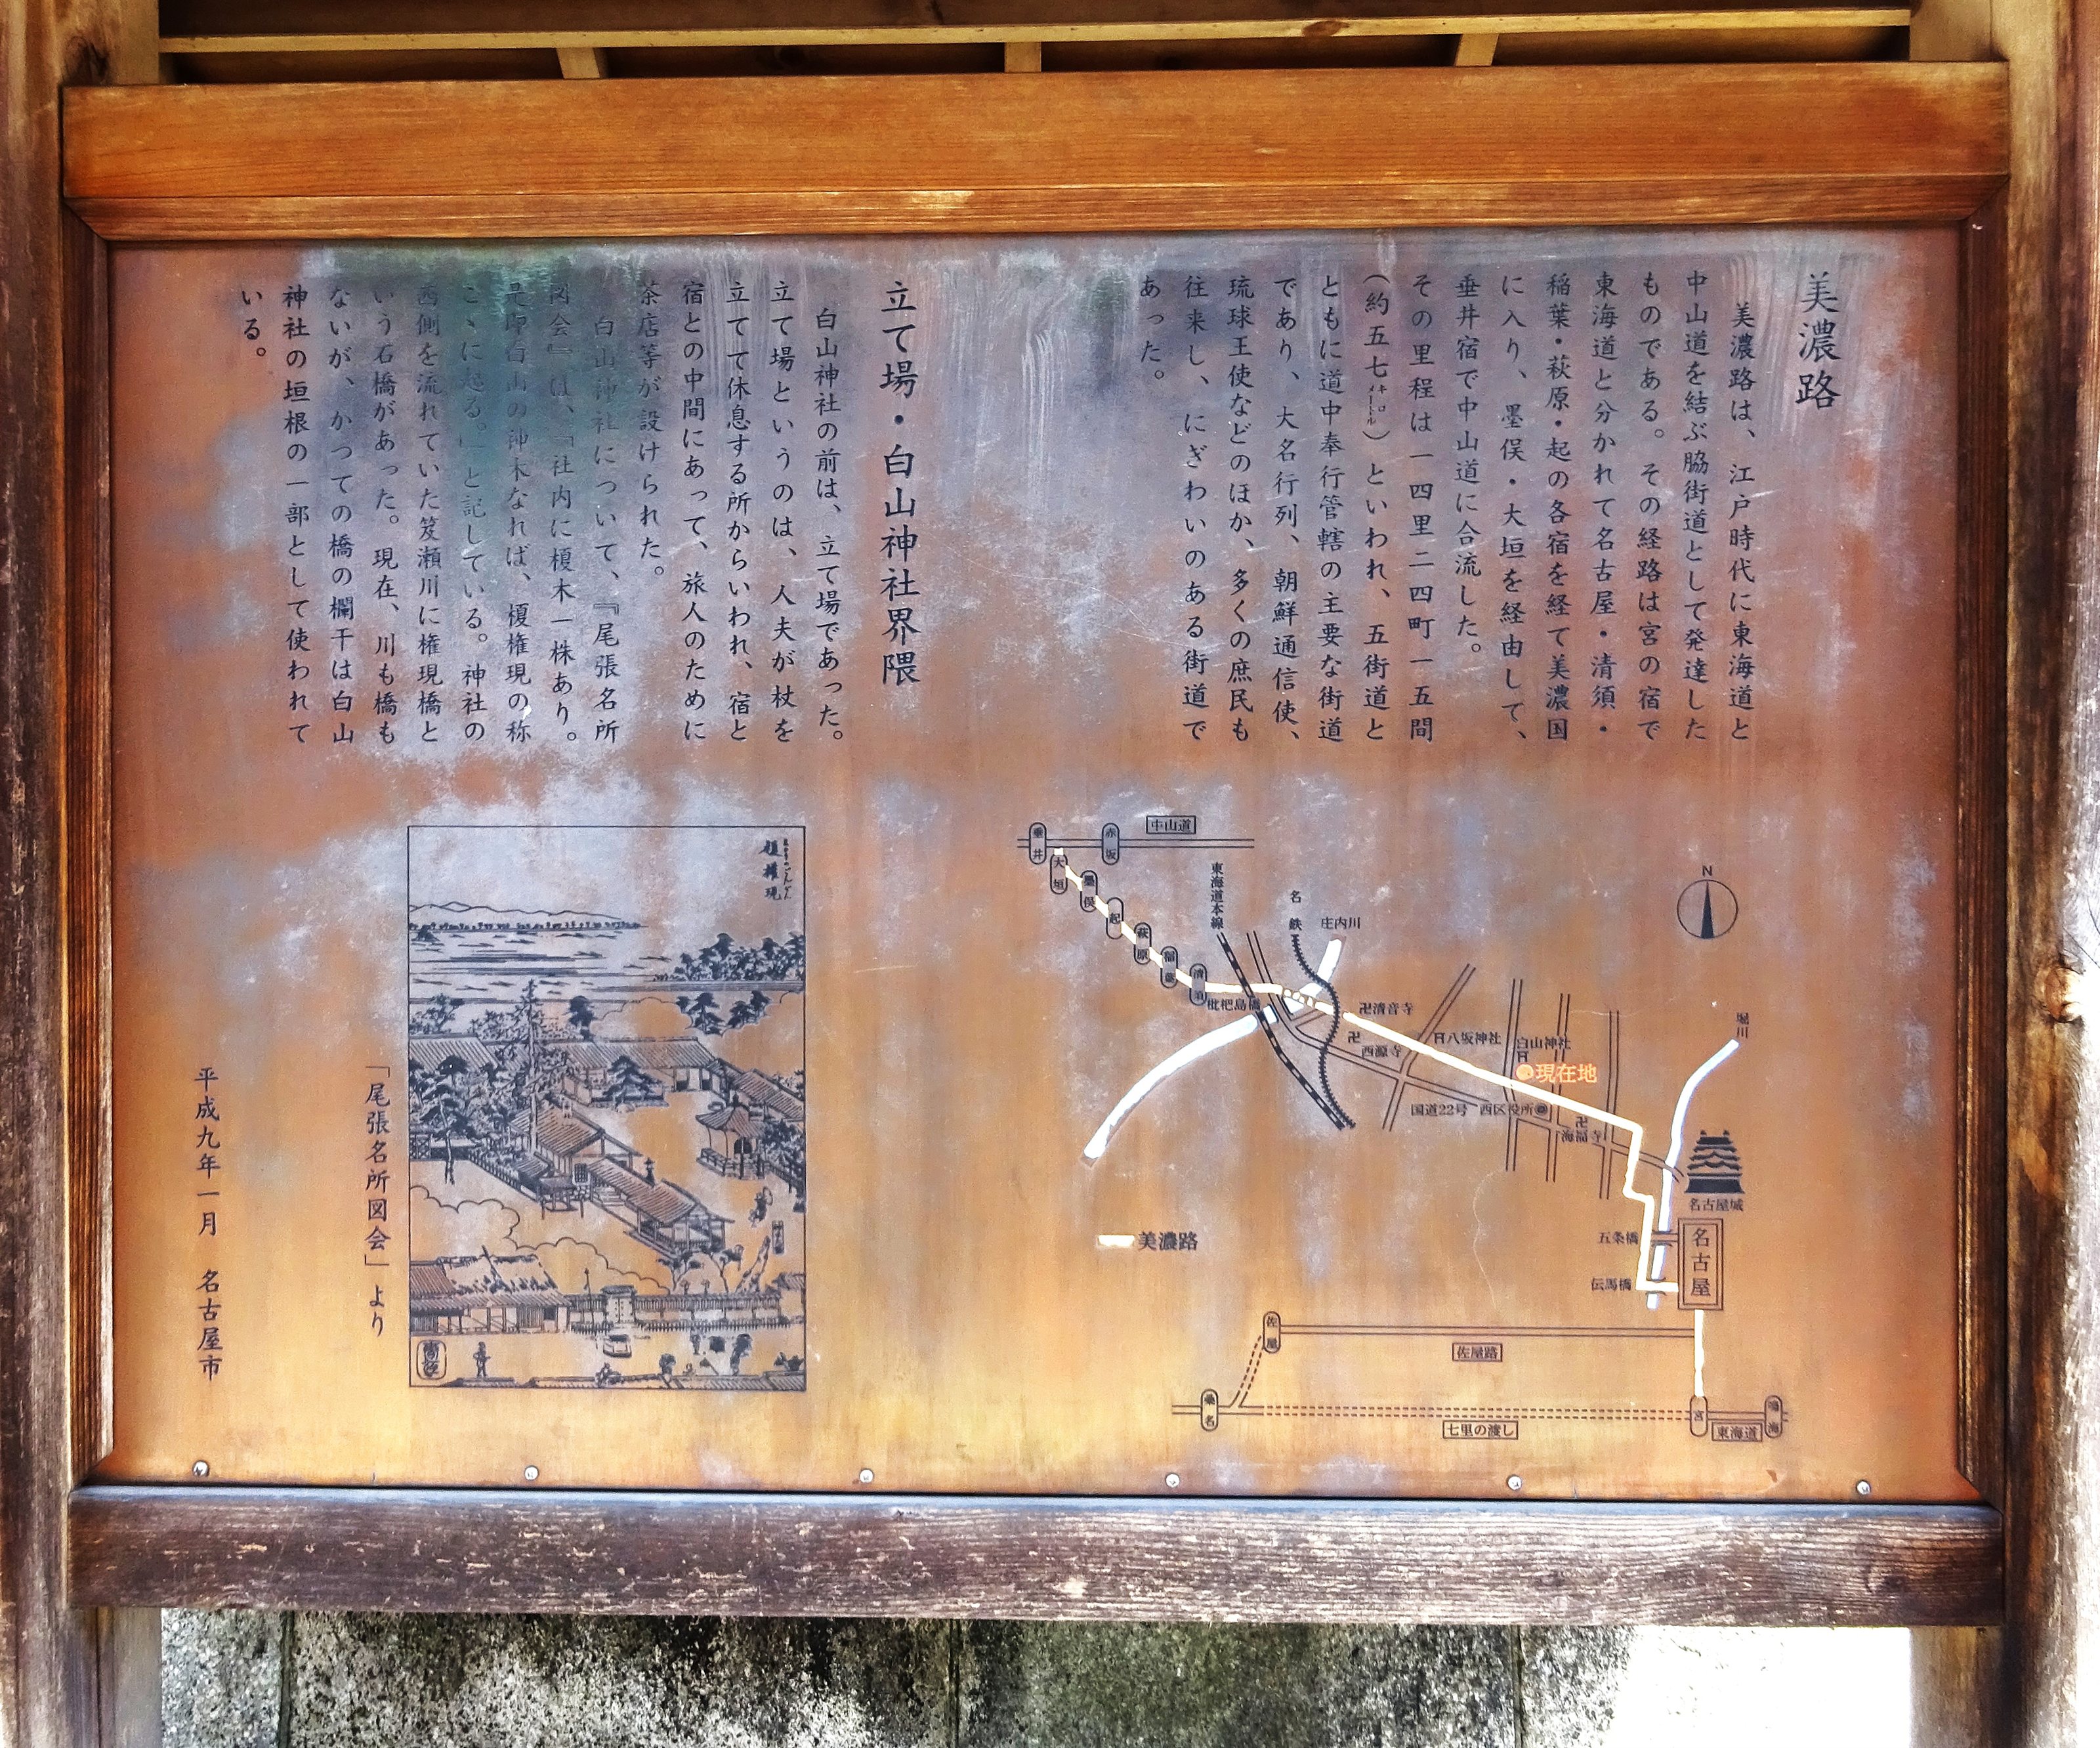 美濃路
美濃路は、江戸時代に東海道と
中山道を結ぶ脇街道として発達した
ものである。その経路は宮の宿で
東海道と分かれて名古屋・清須・
稲葉・萩原・起の各宿を経て美濃国
に入り、墨俣・大垣を経由して、
垂井宿で中山道に合流した。
その里程は一四里二四町一五間
(約五七キロメートル)といわれ、五街道と
ともに道中奉行管轄の主要な街道
であり、大名行列、朝鮮通信使、
琉球王使などのほか、多くの庶民も
往来し、にぎわいのある街道で
あった。
立て場・白山神社界隈
白山神社の前は、立て場であった。
立て場というのは、人夫が杖を
立てて休息する所からいわれ、宿と
宿との中間にあって、旅人のために
茶店等が設けられた。
白山神社について、『尾張名所
図会』は、「社内に榎木一株あり。
是即白山の神木なれば、榎権現の称
こゝに起る。」と記している。神社の
西側を流れていた笈瀬川に権現橋と
いう石橋があった。現在、川も橋も
ないが、かつての橋の欄干は白山
神社の垣根の一部として使われて
いる。
中山道
垂井
赤坂
大垣
墨俣
起
萩原
稲葉
清須
東海道本線
名鉄
庄内川
枇杷島橋
卍清音寺
卍
西源寺
八坂神社
白山神社
現在地
国道22号
西区役所
卍
海福寺
堀川
N
名古屋城
五条橋
名古屋
伝馬橋
美濃路
佐屋
佐屋路
桑名
七里の渡し
宮
東海道
鳴海
榎権現
「尾張名所図会」より
平成九年一月 名古屋市